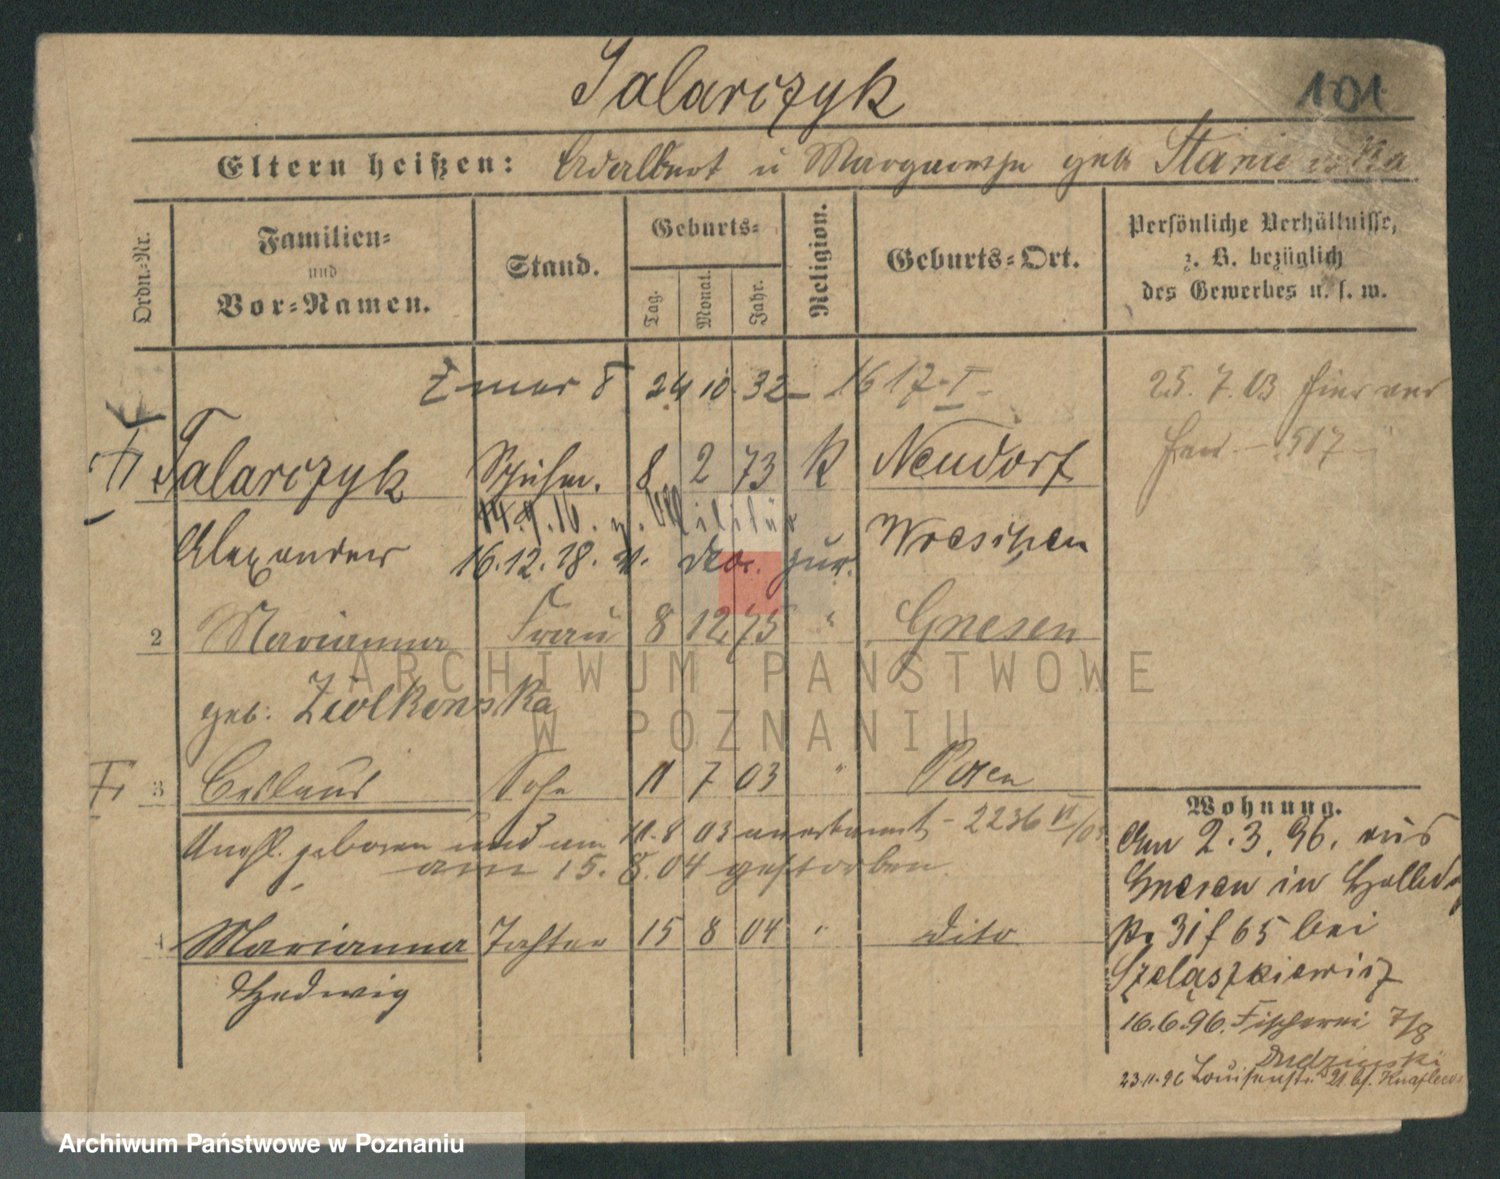 Talarczyk
101
Eltern heißen: Adalbert u Margarethe geb Stanie
Ordn.-Nr.
Familien- und Vor-Namen.
Stand.
Geburts-
Tag.
Monat.
Jahr.
Religion.
Geburts-Ort.
Persönliche Verhältnisse, z. B. bezüglich des Gewerbes u. s. w.
24 10. 32 1617. I
25. 7. 03
517
Talarczyk
8 2 73 K Neudorf
Alexander
14.9.16. z. Militär
16.12.18. v. zur.
Wreschen
2 Marianna Frau 8 12 75 " Gnesen
geb. Ziolkowska
3 Ceslaus Sohn 11 7 03 " Posen
Unehl. geboren und am 11.8 03 anerkannt - 2236 VI/03
am 15. 8. 04 gestorben.
4 Marianna Tochter 15 8 04 " dito
Hedwig
Wohnung.
Am 2. 3. 96. aus
Gnesen in
31 f 65 bei
16.6.96. Fischerei 7/8
23.11.96 Louisenstr. 21 bf.
ARCHIWUM PAŃSTWOWE
W POZNANIU
Archiwum Państwowe w Poznaniu